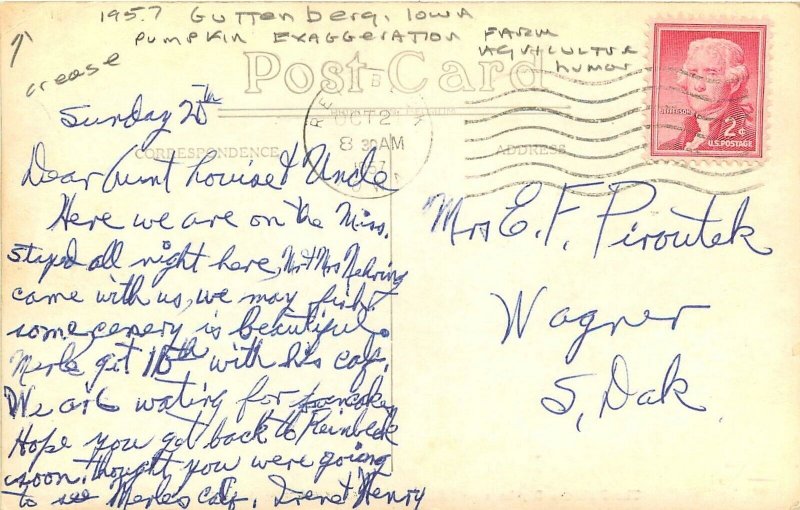 1957 Guttenberg, Iowa
Pumpkin Exaggeration Farm
Agriculture
humor
crease
Post Card
CORRESPONDENCE
ADDRESS
OCT 2
8 30 AM
1957
2¢
U.S. POSTAGE
Sunday 20th
Dear Aunt Louise & Uncle
Here we are on the Miss.
stped all night here, Mr & Mrs Nehring
came with us, we may fish
some cenery is beautiful.
Merle get 16th with his calf.
We are wating for pancake
Hope you got back to Reinbeck
soon, thought you were going
to see Merles calf. Irene & Henry
Mrs E. F. Piroutek
Wagner
S, Dak